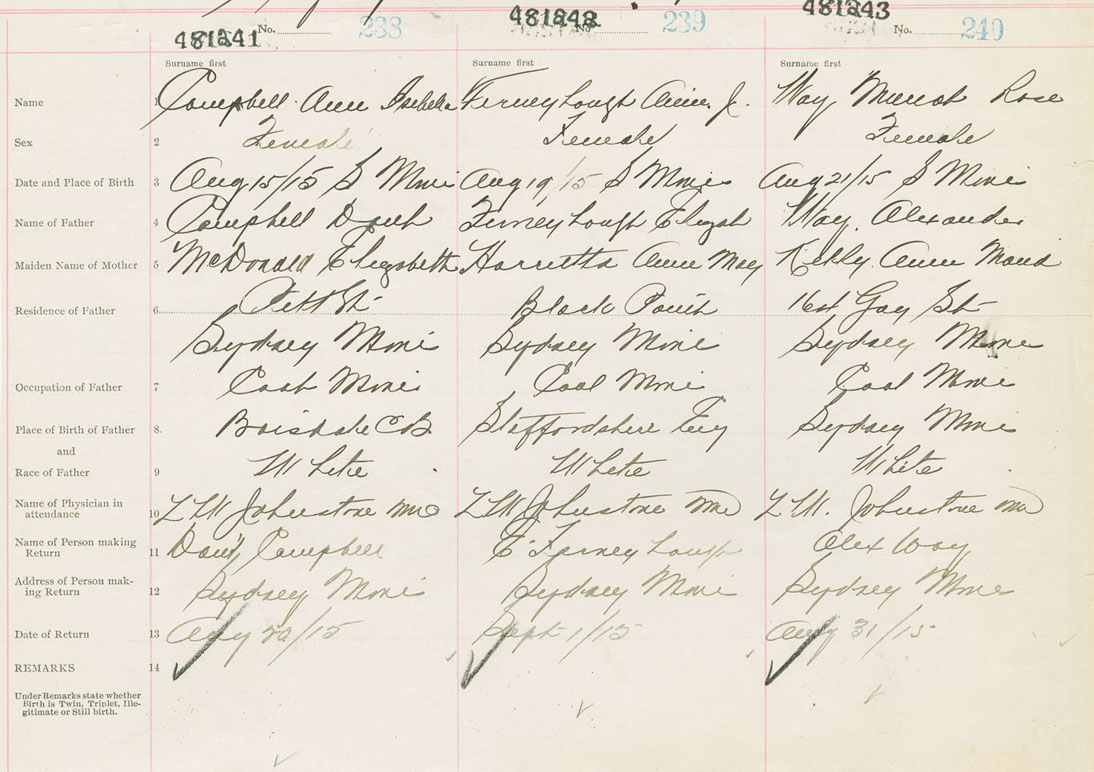 481241 No. 238 481242 No. 239 481243 No. 240
Surname first Surname first Surname first
Name 1 Campbell Ann Isabella Ferneyhough Annie J. Way Rose
Sex 2 Female Female Female
Date and Place of Birth 3 Aug 15/15 S Mine Aug 19/15 S Mines Aug 21/15 S Mine
Name of Father 4 Campbell Ferneyhough Elijah Way, Alexander
Maiden Name of Mother 5 McDonald Elizabeth Ann May Ann Maud
Residence of Father 6 Pitt St Black Point St
Sydney Mine Sydney Mine Sydney Mine
Occupation of Father 7 Coal Mine Coal Mine Coal Mine
Place of Birth of Father 8. CB Staffordshire Eng Sydney Mine
and
Race of Father 9 White White White
Name of Physician in
attendance 10 L W Johnstone MD L W Johnstone MD L.W. Johnstone MD
Name of Person making
Return 11 Campbell E Ferneyhough Alex Way
Address of Person mak-
ing Return 12 Sydney Mine Sydney Mine Sydney Mine
Date of Return 13 Aug /15 Sept 1/15 Aug 31/15
REMARKS 14
Under Remarks state whether
Birth is Twin, Triplet, Ille-
gitimate or Still birth.